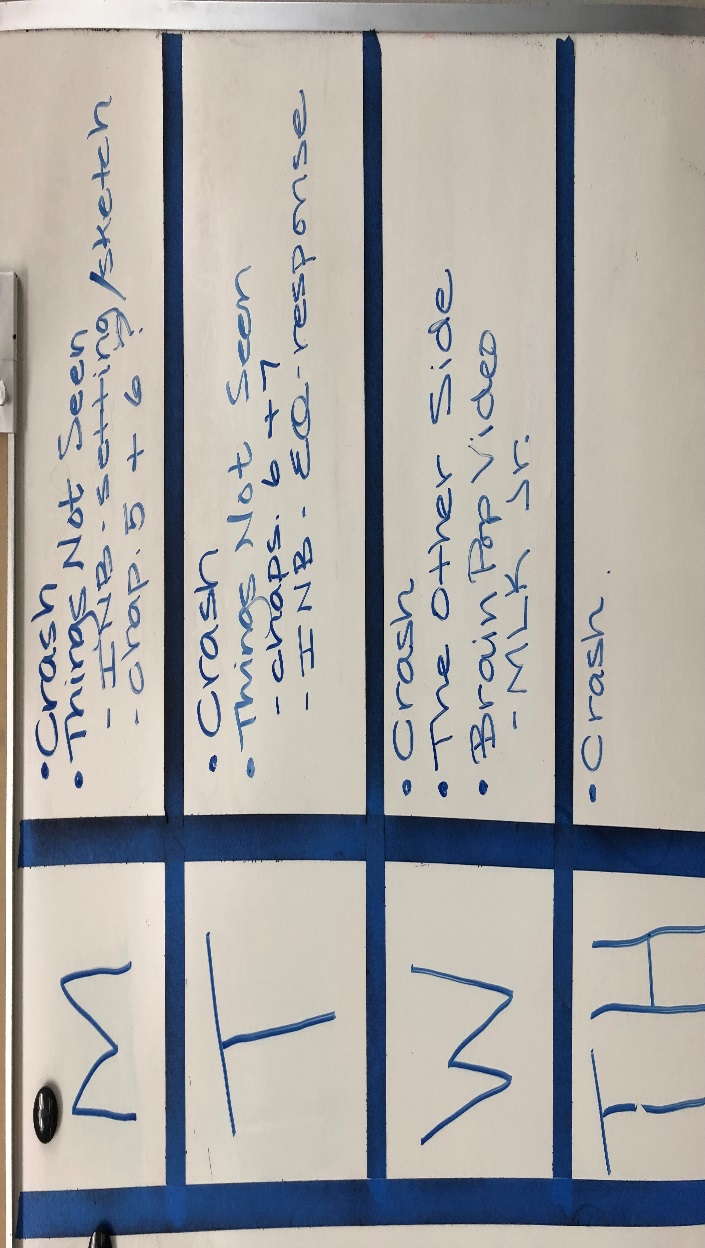 M
• Crash
• Things Not Seen
- INB - setting/sketch
- chap. 5 + 6
T
• Crash
• Things Not Seen
- chaps. 6 + 7
- INB - EQ - response
W
• Crash
• The Other Side
• Brain Pop Video
- MLK Jr.
TH
• Crash